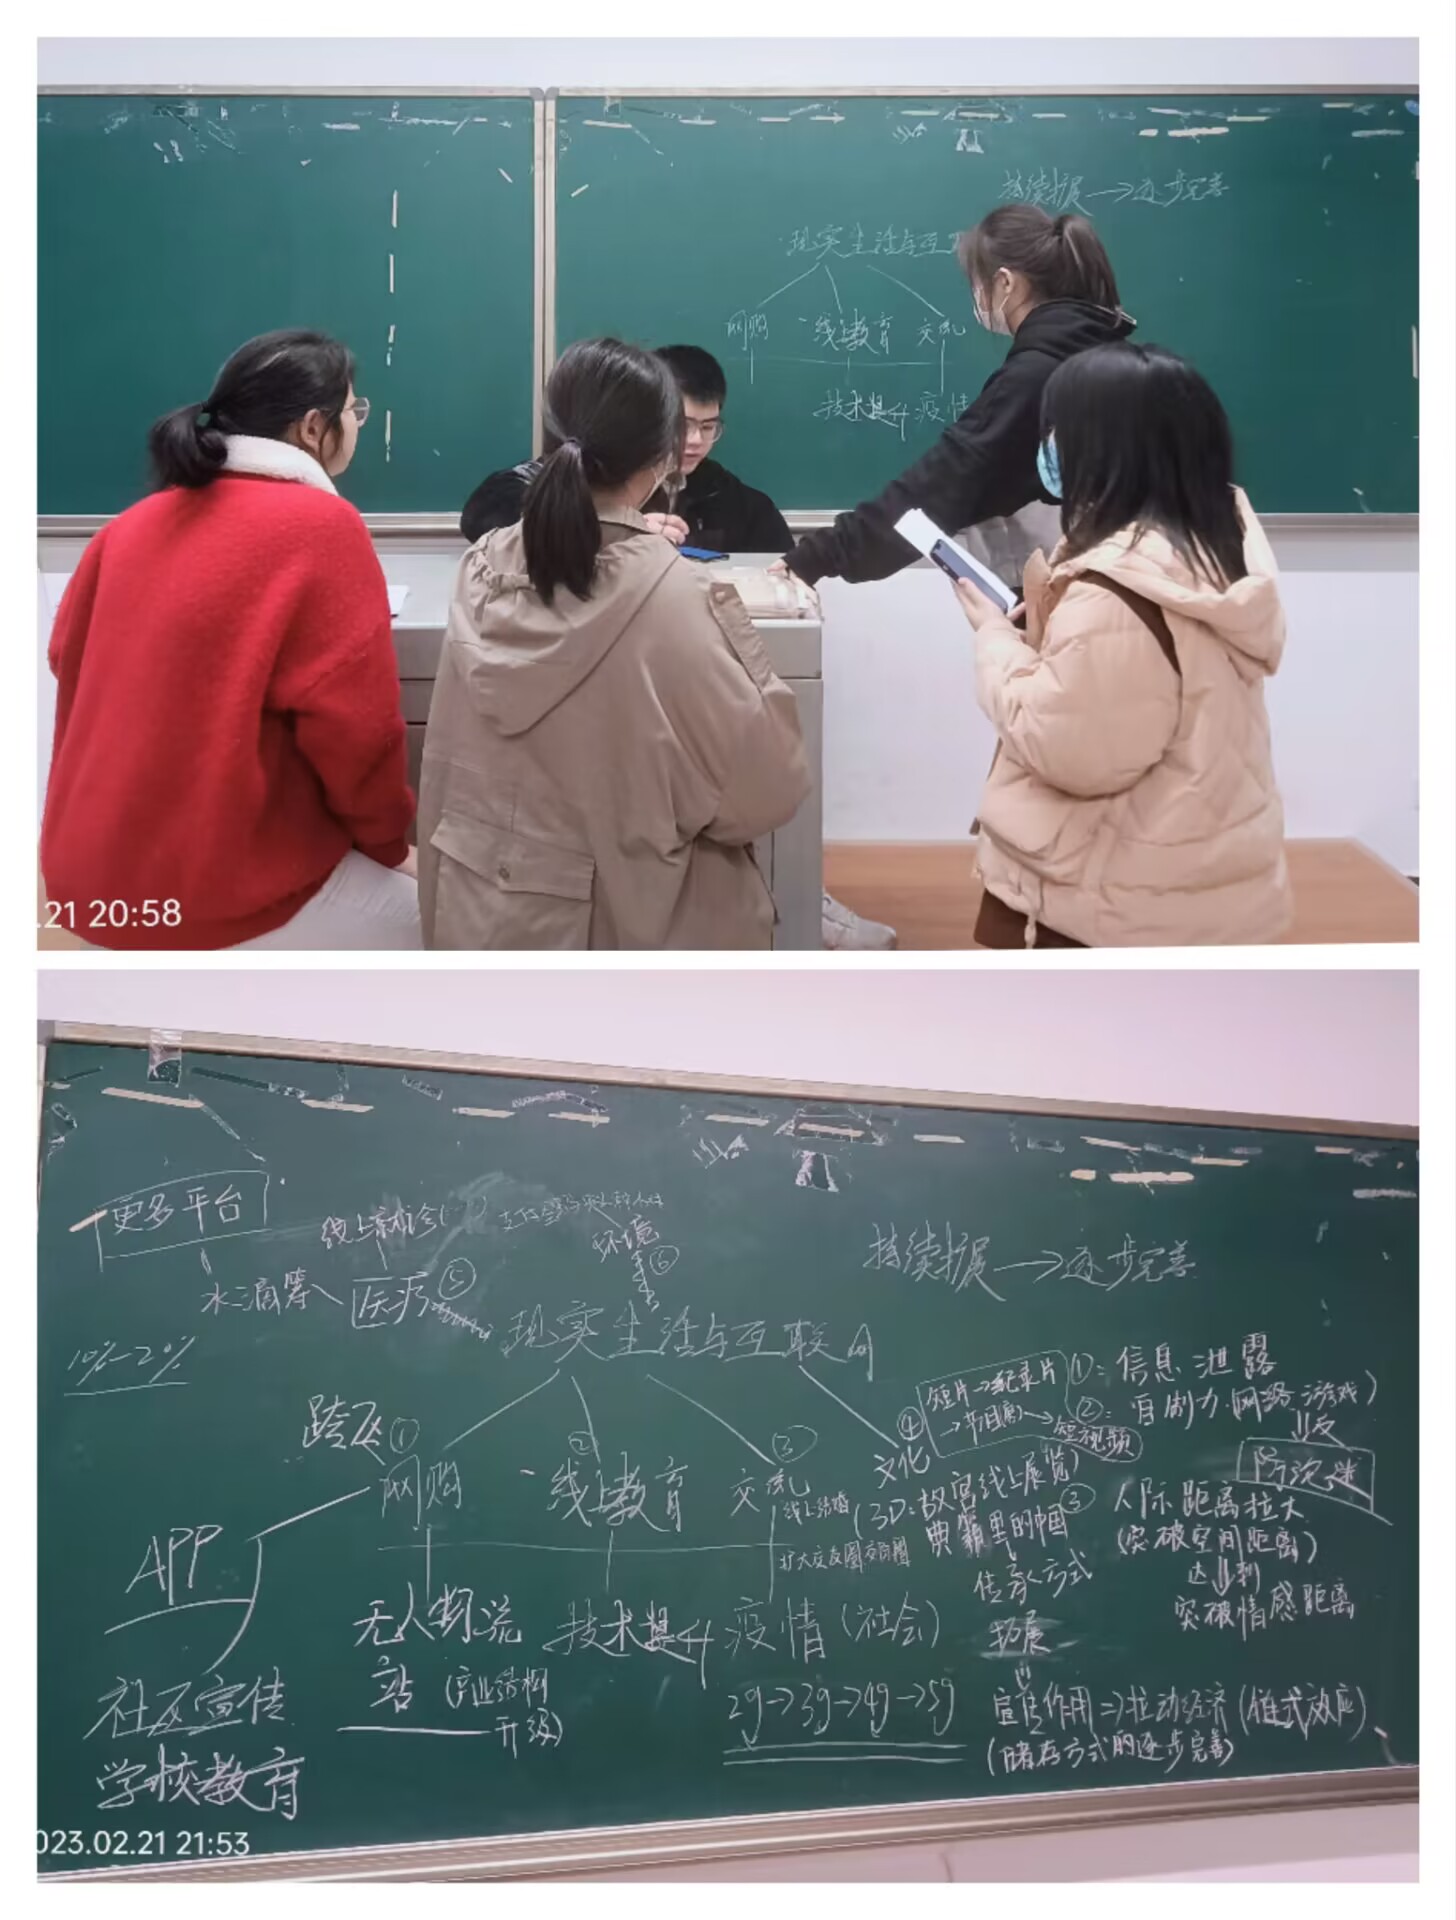 持续扩展→逐步完善
现实生活与互
网购 线上教育 交流
技术提升 疫情
.21 20:58
更多平台
环境
⑥
持续扩展→逐步完善
水滴筹 医疗 ⑤
现实生活与互联网
10%-20%
短片→纪录片
①：信息泄露
②：自制力（网络游戏）
短视频
防沉迷
① ② ③ ④
网购 线上教育 交流 文化
线上结婚
（3D：故宫线上展览）
典籍里的中国
扩大交友圈
③ 人际距离拉大
（突破空间距离）
达到
突破情感距离
传承方式
拓展
APP
无人物流站
（产业结构升级）
技术提升 疫情（社会）
2g→3g→4g→5g
宣传作用⇒拉动经济（链式效应）
（储存方式的逐步完善）
社区宣传
学校教育
023.02.21 21:53